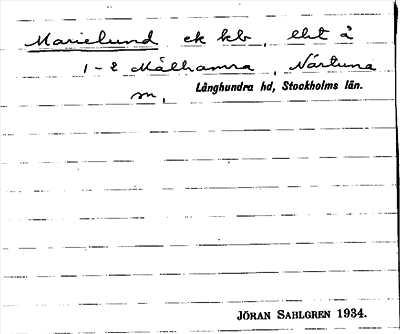 Marielund ek kb, lht å
1-2 Målhamra, Närtuna
sn, Långhundra hd, Stockholms län.
JÖRAN SAHLGREN 1934.